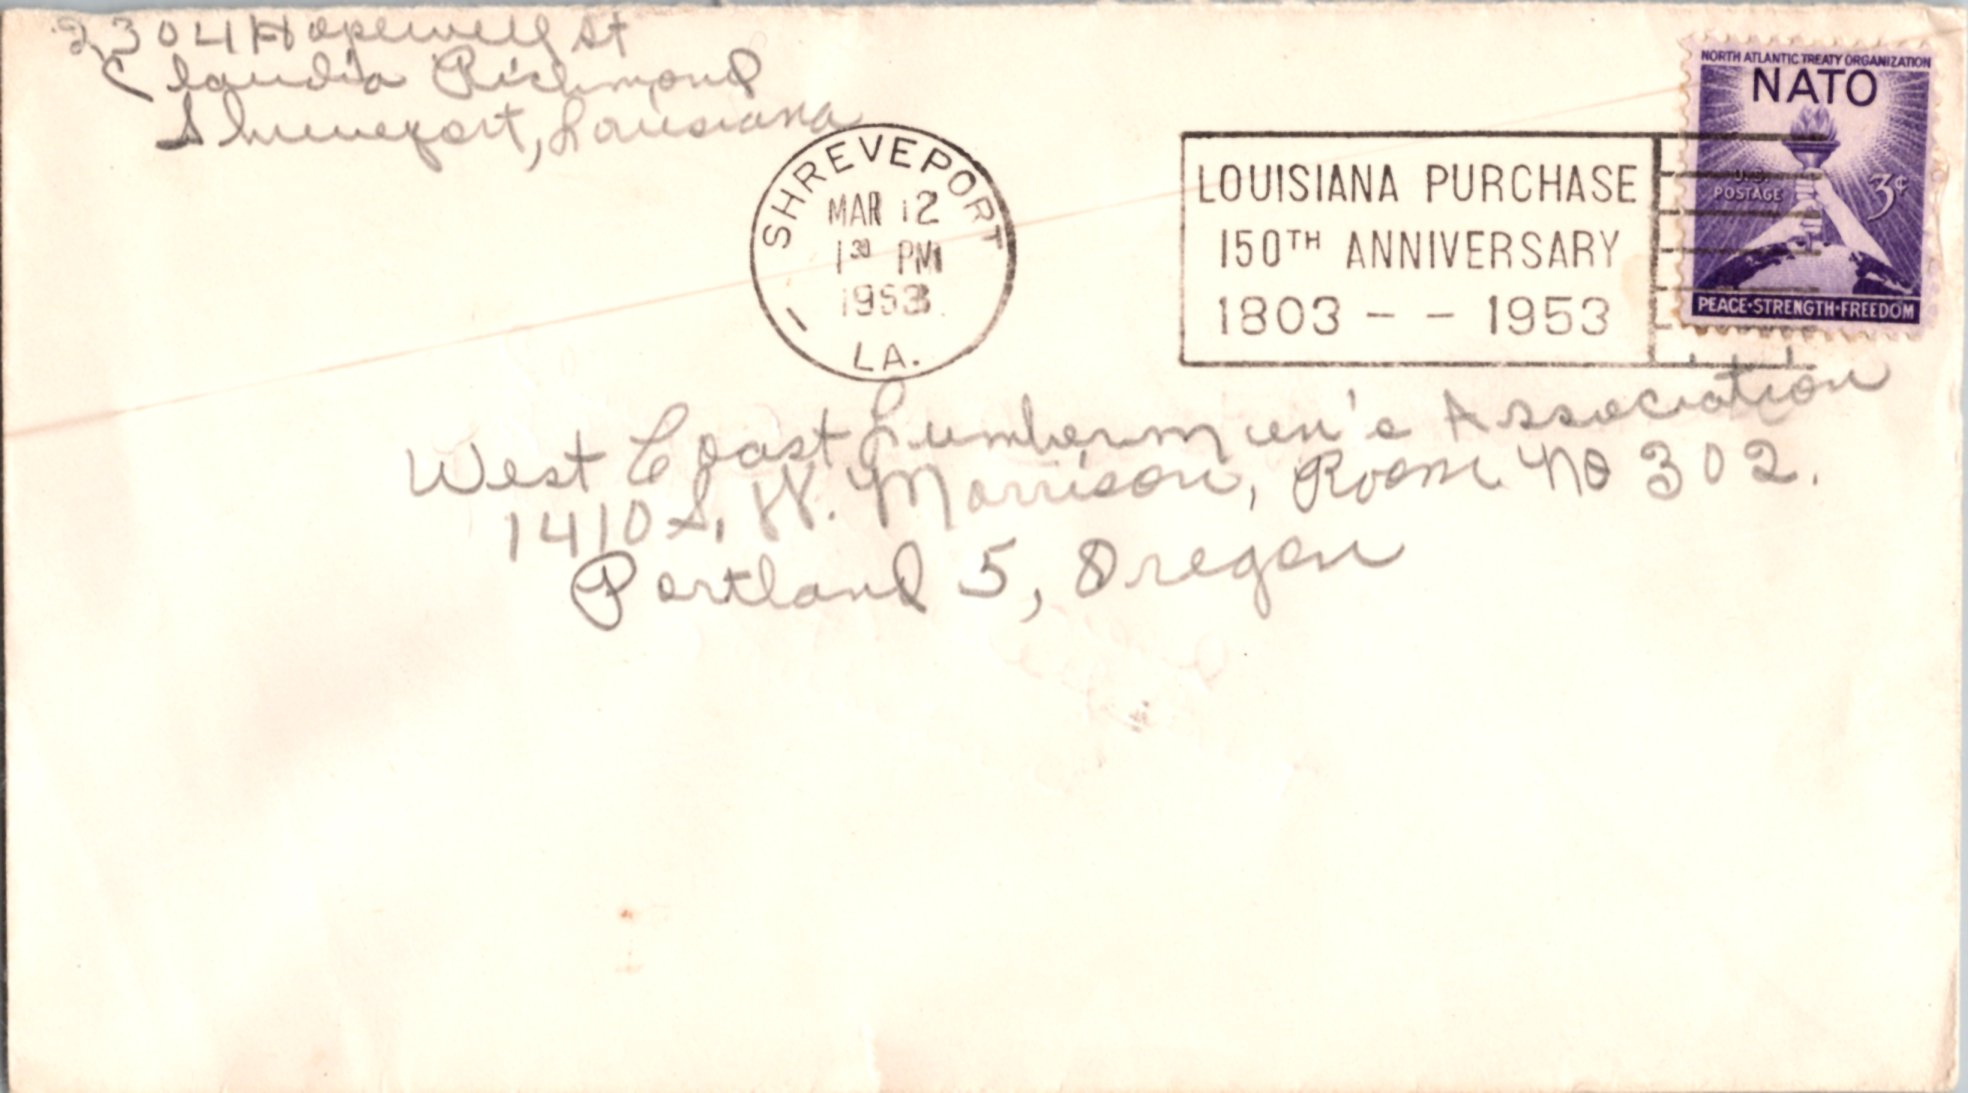 2304 Hopewell St
Claudia Richmond
Shreveport, Louisiana
SHREVEPORT
MAR 12
1 30 PM
1953
LA.
LOUISIANA PURCHASE
150TH ANNIVERSARY
1803 - - 1953
NORTH ATLANTIC TREATY ORGANIZATION
NATO
U.S.
POSTAGE
3¢
PEACE·STRENGTH·FREEDOM
West Coast Lumbermen's Association
1410 S. W. Morrison, Room No 302.
Portland 5, Oregon